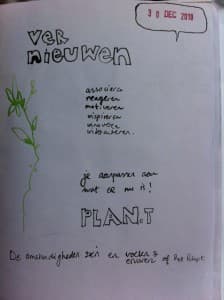 30 DEC 2010
VER
NIEUWEN
associëren
reageren
motiveren
inspireren
innoveren
je aanpassen aan
wat er nu is!
PLAN.T
De omstandigheden zijn en voelen &
ervaren of het klopt.